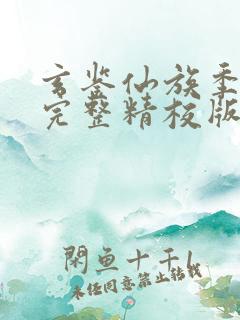 玄鉴仙族季
完整精校版
閑魚十千l
未经同意禁止转载